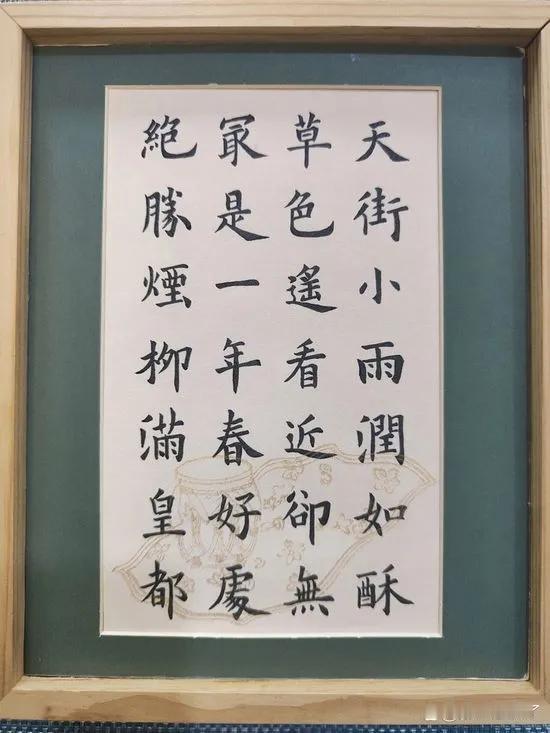 天街小雨潤如酥
草色遙看近卻無
冣是一年春好處
絕勝煙柳滿皇都